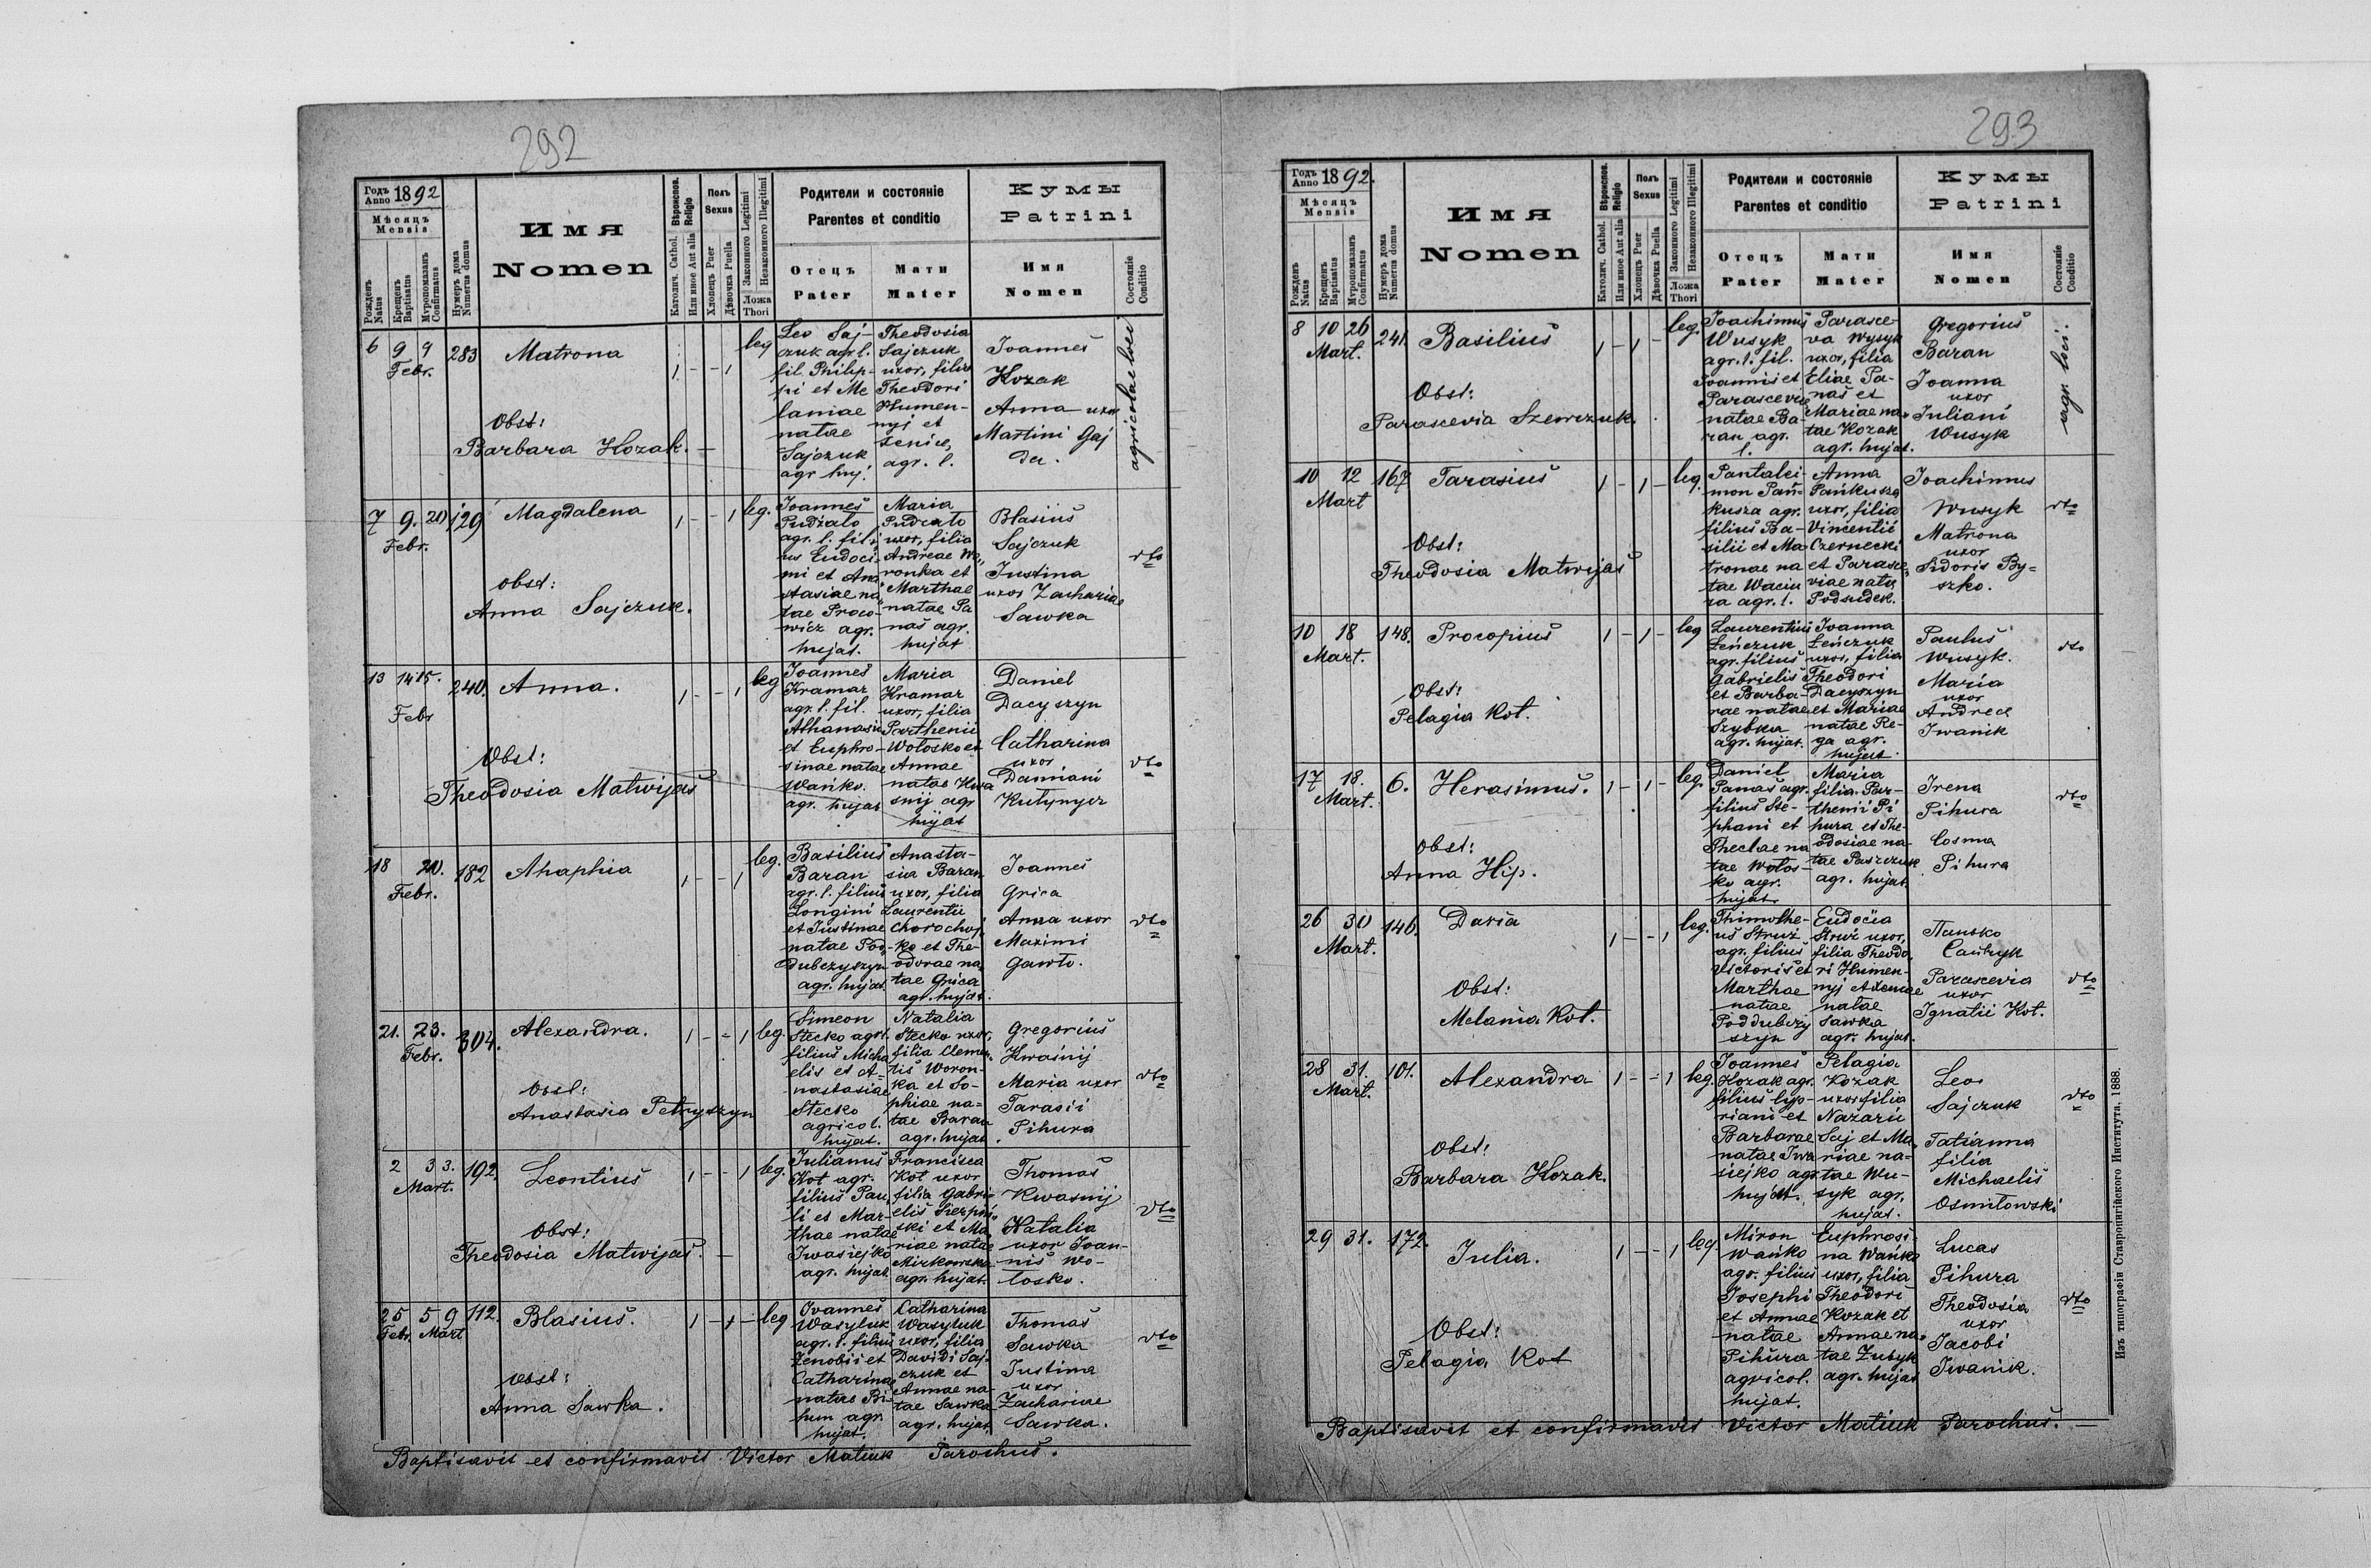 292
Годъ
Anno 1892
Мѣсяцъ
Mensis
Рожденъ
Natus
Крещенъ
Baptisatus
Мѵропомазанъ
Confirmatus
Нумеръ дома
Numerus domus
Имя
Nomen
Вѣроиспов.
Religio
Католич. Cathol.
Или иное Aut alia
Полъ
Sexus
Хлопецъ Puer
Дѣвочка Puella
Законного Legitimi
Незаконного Illegitimi
Ложа
Thori
Родители и состоянiе
Parentes et conditio
Отецъ
Pater
Мати
Mater
Кумы
Patrini
Имя
Nomen
Состоянiе
Conditio
6 9 9
Febr.
283
Matrona
Obst:
Barbara Kozak. —
1 - - 1
leg
Leo Saj-
czuk agr. l.
fil. Philip-
pi et Me
laniae
natae
Sajczuk
agr huj.
Theodosia
Sajczuk
uxor, filia
Theodori
Humen-
nyj et
Xeniae,
agr. l.
Joannes
Kozak
Anna uxor
Martini Gaj
da.
agricolae loci
7 9. 20
Febr.
129
Magdalena
obst:
Anna Sajczuk.
1 - - 1
leg.
Joannes
Pudzało
agr. l. fili
us Eudoci-
mi et Ana
stasiae na
tae Proco-
wicz agr.
hujat.
Maria
Pudzało
uxor, filia
Andreae Wo
ronka et
Marthae
natae Pa
nas agr.
hujat
Blasius
Sajczuk
Justina
uxor Zachariae
Sawka
dto
13 14 15.
Febr
240.
Anna.
Obst:
Theodosia Matwijas
1 - - 1
leg
Joannes
Kramar
agr. l. fil.
Athanasii
et Euphro-
sinae natae
Wańko.
agr. hujat
Maria
Kramar
uxor, filia
Parthenii
Wołosko et
Annae
natae Kwa
snij agr
hujat
Daniel
Dacyszyn
Catharina
uxor
Damiani
Kutynycz
dto
18 20.
Febr.
182
Ahaphia
1 - - 1
leg.
Basilius
Baran
agr. l. filius
Longini
et Justinae
natae Pod-
dubczyszyn
agr. hujat.
Anasta-
sia Baran
uxor, filia
Laurentii
Chorochoj
ko et The-
odorae na
tae Grica
agr. hujat.
Joannes
Grica
Anna uxor
Maximi
Gawło.
dto
21. 23.
Febr.
304.
Alexandra.
Obst:
Anastasia Petryszyn
1 - - 1
leg.
Simeon
Stecko agr. l.
filius Micha
elis et A-
nastasiae
Stecko
agricol.
hujat.
Natalia
Stecko uxor,
filia Clemen
tis Woron-
ka et So-
phiae na-
tae Baran
agr. hujat.
Gregorius
Kwaśnij
Maria uxor
Tarasii
Pihura
dto
2 3 3.
Mart.
192.
Leontius
Obst:
Theodosia Matwijas. —
1 - - 1
leg.
Julianus
Kot agr.
filius Pau
li et Mar-
thae natae
Iwasiejko
agr. hujat.
Francisca
Kot uxor
filia Gabri
elis Sierpiń
ski et Ma
riae natae
Mirkowska
agr. hujat.
Thomas
Kwasnij
Natalia
uxor Joan-
nis Wo-
łosko.
dto
25 5 9
Febr. Mart
112.
Blasius.
obst:
Anna Sawka.
1 - 1 -
leg
Joannes
Wasyluk
agr. l. filius
Zenobii et
Catharinae
natae Bi-
hun agr.
hujat.
Catharina
Wasyluk
uxor, filia
Davidi Saj-
czuk et
Annae na-
tae Sawka
agr. hujat.
Thomas
Sawka
Justina
uxor
Zachariae
Sawka.
dto
Baptisavit et confirmavit Victor Matiuk Parochus.
293
Годъ
Anno 1892.
Мѣсяцъ
Mensis
Рожденъ
Natus
Крещенъ
Baptisatus
Мѵропомазанъ
Confirmatus
Нумеръ дома
Numerus domus
Имя
Nomen
Вѣроиспов.
Religio
Католич. Cathol.
Или иное Aut alia
Полъ
Sexus
Хлопецъ Puer
Дѣвочка Puella
Законного Legitimi
Незаконного Illegitimi
Ложа
Thori
Родители и состоянiе
Parentes et conditio
Отецъ
Pater
Мати
Mater
Кумы
Patrini
Имя
Nomen
Состоянiе
Conditio
8 10 26
Mart.
241.
Basilius
Obst:
Parascevia Szewczuk.
1 - 1 -
leg.
Joachimus
Wusyk
agr. l. fil.
Joannis et
Parasceviae
natae Ba-
ran agr.
l.
Parasce-
va Wysyk
uxor, filia
Eliae Pa-
nas et
Mariae na-
tae Kozak
agr. hujat.
Gregorius
Baran
Joanna
uxor
Juliani
Wusyk
agr. loci.
10 12
Mart
167
Tarasius
Obst:
Theodosia Matwijas
1 - 1 -
leg.
Pantalei-
mon Pań-
kusza agr.
filius Ba-
silii et Ma
tronae na
tae Waciu
ra agr. l.
Anna
Pańkusza
uxor, filia
Vincentii
Czernecki
et Parasce
viae natae
Podsudek.
Joachimus
Wusyk
Matrona
uxor
Sidoris By-
szko.
dto
10 18
Mart.
148.
Procopius
Obst:
Pelagia Kot.
1 - 1 -
leg
Laurentius
Leńczuk
agr. filius
Gabrielis
et Barba-
rae natae
Szybka
agr. hujat.
Joanna
Leńczuk
uxor, filia
Theodori
Dacyszyn
et Mariae
natae Re-
ga agr.
hujat
Paulus
Wusyk.
Maria
uxor
Andreae
Iwanik
dto
17 18.
Mart.
6.
Herasimus.
obst:
Anna Hip.
1 - 1 -
leg.
Daniel
Panas agr.
filius Ste-
phani et
Theclae na
tae Wołos-
ko agr.
hujat.
Maria
filia Par-
thenii Pi
hura et The-
odosiae na-
tae Paszczuk
agr. hujat.
Irena
Pihura
Cosma
Pihura
dto
26 30
Mart.
146.
Daria
Obst:
Melania Kot.
1 - - 1
leg.
Thimothe-
us Struż
agr. filius
Victoris et
Marthae
natae
Poddubczy
szyn
Eudocia
Struż uxor,
filia Theodo
ri Humen-
nyj Axeniae
natae
Sawka
agr. hujat.
Панько
Parascevia
uxor
Ignatii Kot.
dto
28 31.
Mart.
101.
Alexandra
Obst:
Barbara Kozak.
1 - - 1
leg.
Joannes
Kozak agr.
filius Cyp-
riani et
Barbarae
natae Iwa
siejko agr.
hujat.
Pelagia
Kozak
uxor filia
Nazarii
Saj et Ma
riae na-
tae Wu-
syk agr.
hujat.
Leo
Sajczuk
Tatianna
filia
Michaelis
Osmiłowski
dto
29 31.
172.
Julia.
Obst:
Pelagia Kot
1 - - 1
leg.
Miron
Wańko
agr. filius
Josephi
et Annae
natae
Pihura
agricol.
hujat.
Euphrosi-
na Wańko
uxor, filia
Theodori
Kozak et
Annae na-
tae Zubyk
agr. hujat
Lucas
Pihura
Theodosia
uxor
Jacobi
Iwanik.
dto
Baptisavit et confirmavit Victor Matiuk Parochus. —
Изъ типографiи Ставропигiйского Института, 1888.